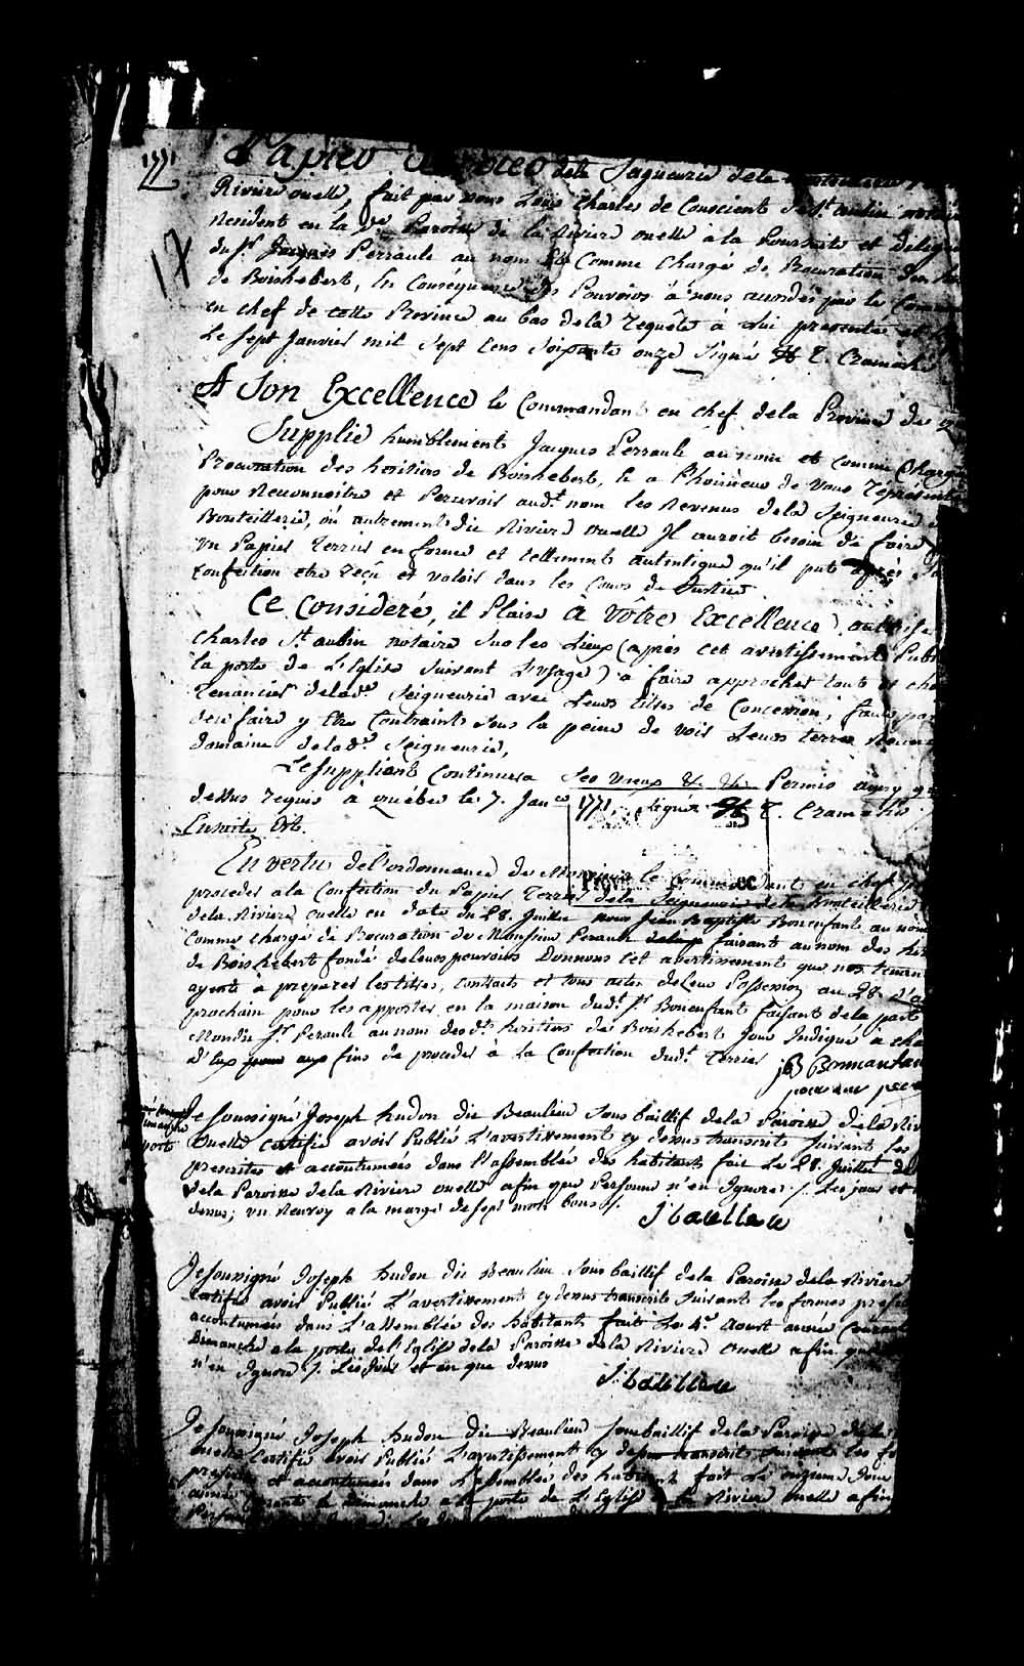 1771
17
Papier Terrier dela Seigneurie dela Bouteillerie
Riviere ouelle, fait par nous Louis Charles de Conscient St. aubin notaire
Resident en la de. Paroisse de la Riviere ouelle à la Poursuite et diligen
du Sr. Jacques Perrault au nom & Comme Chargé de Procuration des
de Boishebert, En Conséquence des Pouvoirs à nous accordés par le Comm
en chef de cette Province au bas dela Requête à Lui presentée
Le Sept Janvier mil Sept Cens Soixante onze Signé H T. Cramahé
A Son Excellence le Commandant en chef dela Province de
Supplie humblement Jacques Perrault au nom et comme Chargé
Procuration des heritiers de Boishebert, & a l'honneur de Vous représenter
pour Reconnoitre et Percevoir audt. nom les Revenus dela Seigneurie
Bouteillerie, ou autrement dit Riviere ouelle Il auroit besoin de faire
un Papier Terrier en forme et tellement autentique qu'il put après
confection etre reçû et valoir dans les Cours de Justice.
Ce Consideré, il Plaise à Vôtre Excellence, autoriser
Charles St. aubin notaire Sur les Lieux (après cet avertissement Publ
la porte de L'Eglise Suivant L'usage) à faire approcher tout et cha
Tenancier deladte. Seigneurie avec Leurs titres de Concession, faute par
d'en faire y Etre Contraints sous la peine de voir Leurs terres Reunies
domaine deladte. Seigneurie,
Le Suppliant Continuera Ses vœux &c. &c. Permis ainsy q
dessus requis à québec le 7. Janer 1771 Signé H T. Cramahé
Ensuite Est.
En vertu del'ordonnance de Monsieur le Commandant en chef
proceder à la Confection du Papier Terrier dela Seigneurie dela Bouteillerie
dela Riviere ouelle en date du 28. Juillet nous Jean Baptiste Bonenfant au nom
Comme Chargé de Procuration de Monsieur Perault faisant au nom des her
de Boishebert fondé de Leurs pouvoirs Donnons cet avertissement que nos tenan
ayent à préparer les titres, contrats et tous actes de Leur Possession au 28 d'a
prochain pour les apporter en la maison dudt. Sr. Bonenfant faisant dela part
Mondit Sr. Perault au nom desdt. heritiers de Boishebert Jour Indiqué a cha
d'eux pour aux fins de proceder à la Confection dudt. Terrier jB Bonnanfan
pour eur
Je Soussigné Joseph hudon dit Beaulieu Sous baillif dela Paroisse dela Riv
Ouelle Certifie avoir Publié L'avertissement cy dessus transcrit Suivant les
prescrites et accoutumées dans l'assemblée des habitants fait Le 28. Juillet
dela Paroisse dela Riviere ouelle afin que Personne n'en Ignore ./. Les jour et
dessus; un Renvoy a la marge de sept mots bons ./. J baullieu
Je Soussigné Joseph hudon dit Beaulieu Sous baillif dela Paroisse dela Riviere
Certifie avoir Publié L'avertissement cy dessus transcrit Suivant les formes prescri
accoutumées dans L'assemblée des habitants fait Le 4e. Aoust année Courante
Dimanche a la porte del'Eglise dela Paroisse dela Riviere Ouelle afin que
n'en Ignore ./. Les jour et an que dessus J baullieu
Je Soussigné Joseph hudon dit Beaulieu Sous baillif dela Paroisse dela
Ouelle Certifie avoir Publié L'avertissement cy dessus transcrit suivant les fo
prescrites et accoutumées dans L'assemblée des habitants fait Le onzieme Jour
année Courante le Dimanche a la porte de L'Eglise Riviere ouelle afin